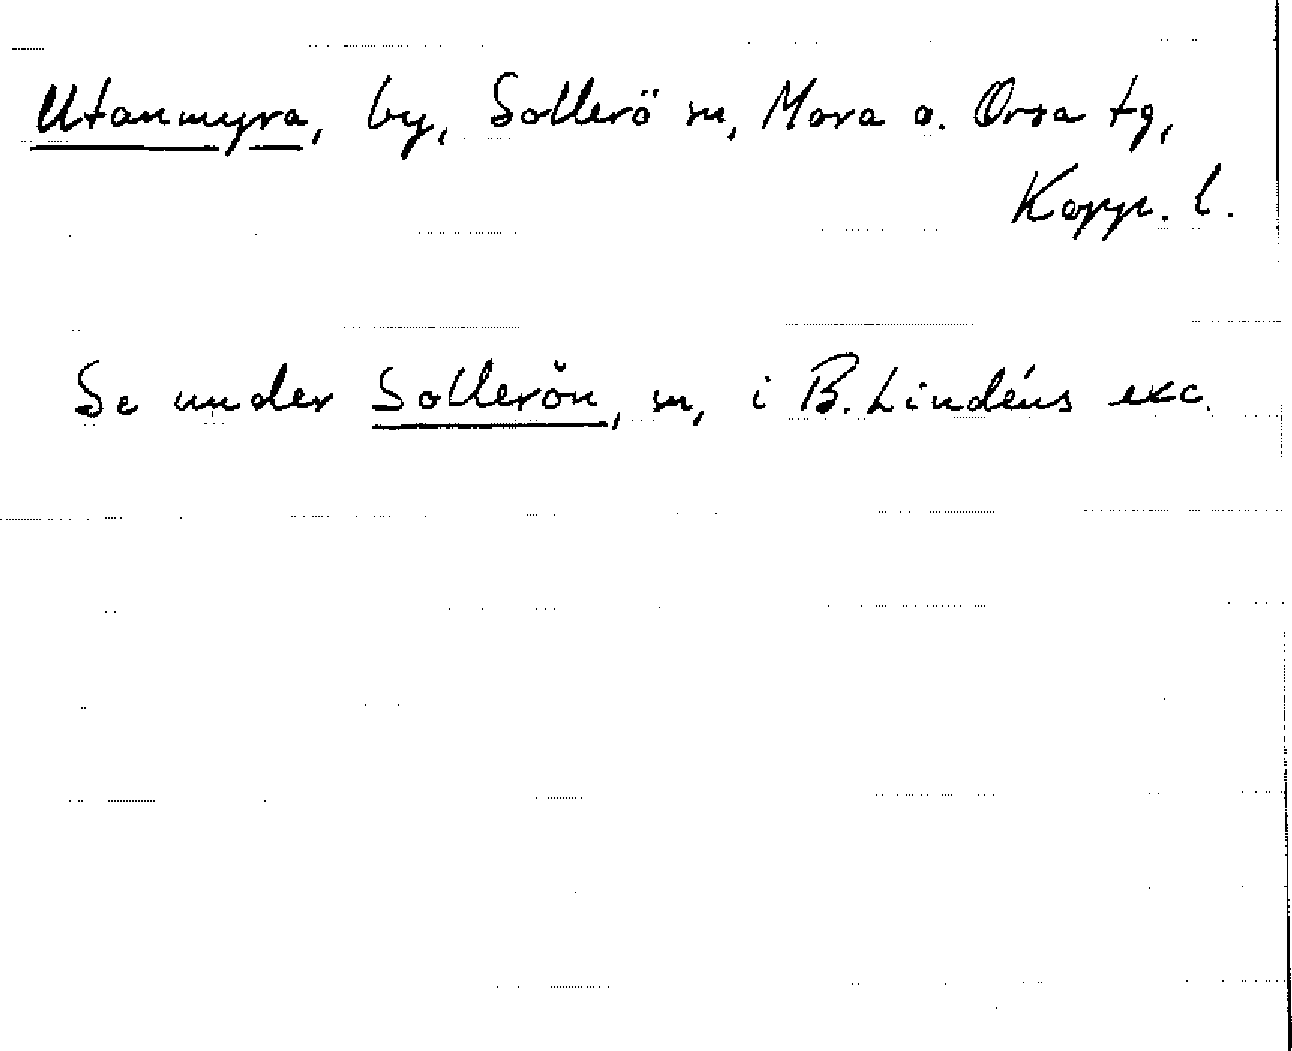 Utanmyra, by, Sollerö sn, Mora o. Orsa tg,
Kopp. l.
Se under Sollerön, sn, i B. Lindéns exc.